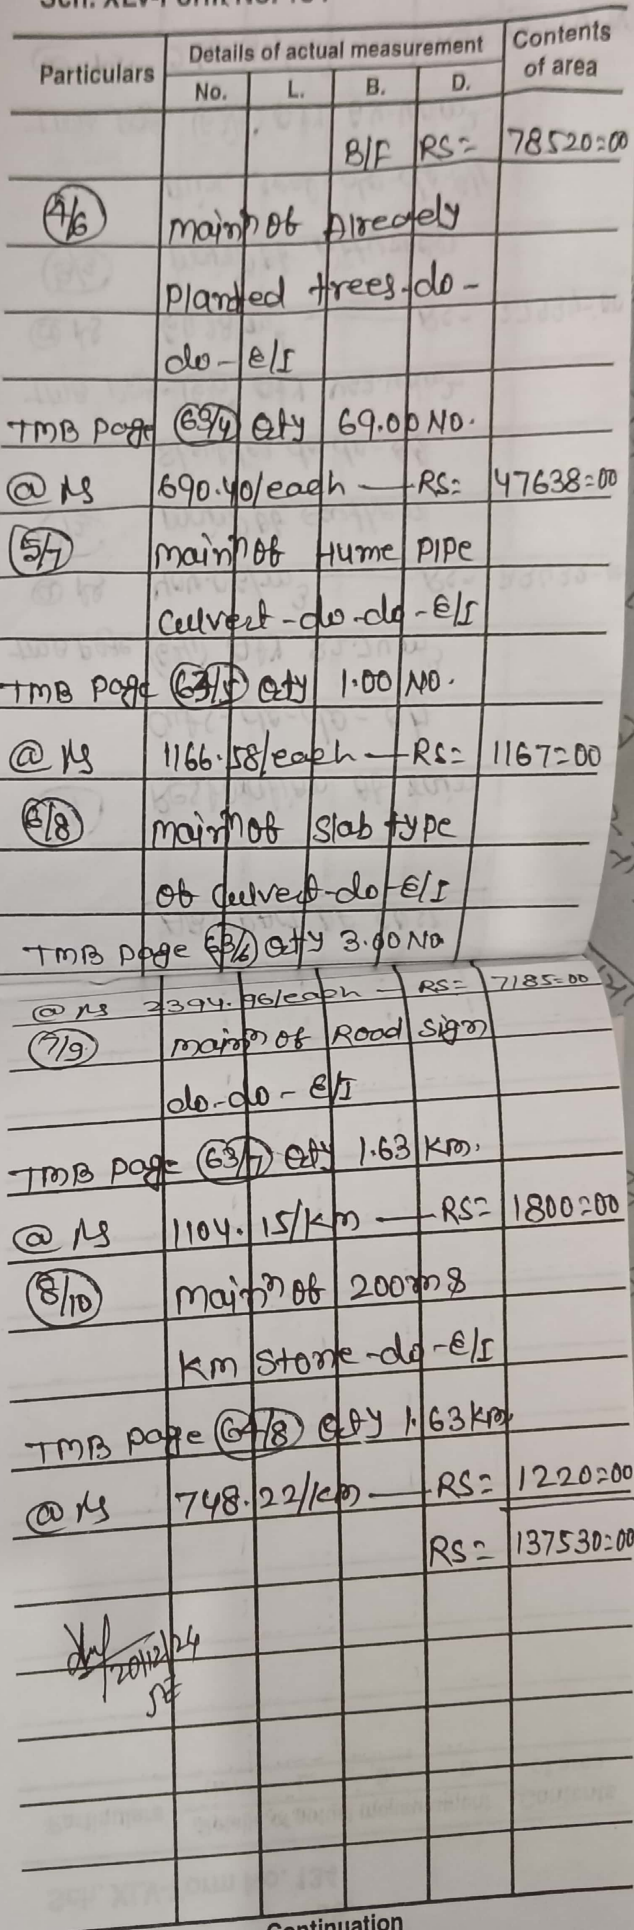 Particulars Details of actual measurement Contents of area
No. L. B. D.
B/F RS= 78520=00
4/6 Maintn of Already
Planted trees-do-
do-E/I
TMB Page 63/4 Qty 69.00 No.
@ Rs 690.40/each — RS= 47638=00
5/7 Maintn of Hume PIPe
Culvert-do-do-E/I
TMB Page 63/5 Qty 1.00 NO.
@ Rs 1166.58/each — RS= 1167=00
6/8 Maintn of Slab type
of Culvert-do-E/I
TMB Page 63/6 Qty 3.00 No
@ Rs 2394.96/each — RS= 7185=00
7/9 Maintn of Road Sign
do-do-E/I
TMB Page 63/7 Qty 1.63 Km.
@ Rs 1104.15/Km — RS= 1800=00
8/10 Maintn of 200m &
Km Stone-do-E/I
TMB Page 64/8 Qty 1.63 Km
@ Rs 748.22/Km — RS= 1220=00
RS= 137530=00
20/12/24
JE
Continuation